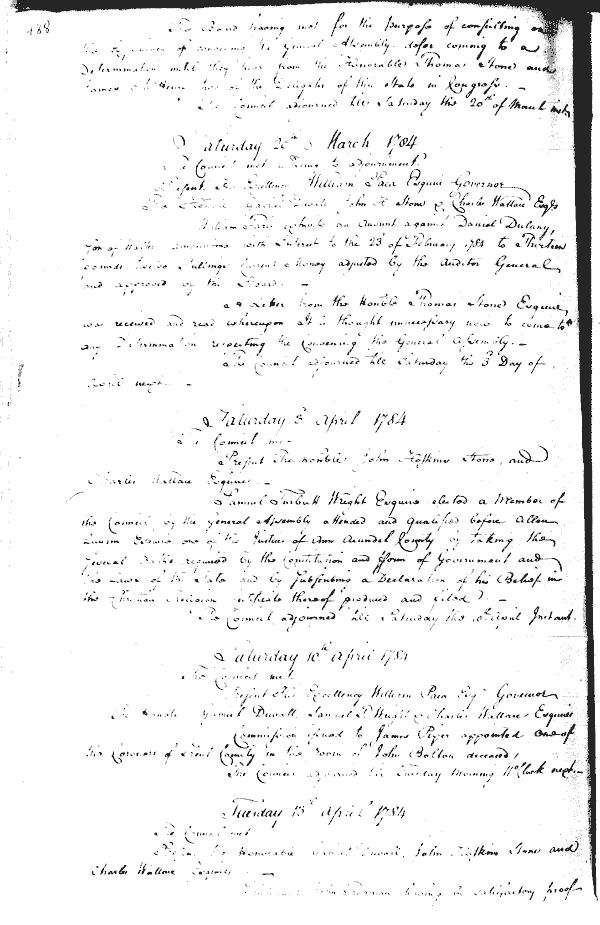 188
The Board having met for the purpose of consulting on
the Expediency of convening the General Assembly defer coming to a
Determination until they hear from the Honorable Thomas Stone and
James McHenry two of the Delegates of this State in Congress. —
The Council adjourned till Saturday the 20th of March
Saturday 20th March 1784
The Council met according to adjournment.
Present His Excellency William Paca Esquire Governor
The Honble Gabriel Duvall John H Stone & Charles Wallace Esqrs
William an Account against Daniel Dulany,
Son of Walter amounting with Interest to the 23 of February 1784 to Thirteen
pounds twelve Shillings Current Money adjusted by the Auditor General
and approved by the Board. —
A Letter from the Honble Thomas Stone Esquire
was received and read whereupon It is thought unnecessary now to come to
any Determination respecting the Convening the General Assembly. —
The Council adjourned till Saturday the 3d Day of
April next. —
Saturday 3d April 1784
The Council met
Present The Honble John Hoskins Stone, and
Charles Wallace Esquires —
Samuel Turbutt Wright Esquire elected a Member of
the Council by the General Assembly attended and qualified before Allen
Quynn Esquire one of the Justices of Ann Arundel County by taking the
several Oaths required by the Constitution and Form of Government and
the Laws of the State and by Subscribing a Declaration of his Belief in
the Christian Religion Certificate thereof produced and filed. —
The Council adjourned till Saturday the 10th April Instant.
Saturday 10th April 1784
The Council met
Present His Excellency William Paca Esqr Governor
The Honble Gabriel Duvall, Samuel T. Wright & Charles Wallace Esquires
Commission issued to James Piper appointed one of
the Coroners of Kent County in the room of John Bolton deceased,
The Council adjourned till Tuesday Morning 11 oClock next —
Tuesday 13th April 1784
The Council met
Present the Honorable Gabriel Duvall, John Hoskins Stone and
Charles Wallace Esquires —
John having by satisfactory proof